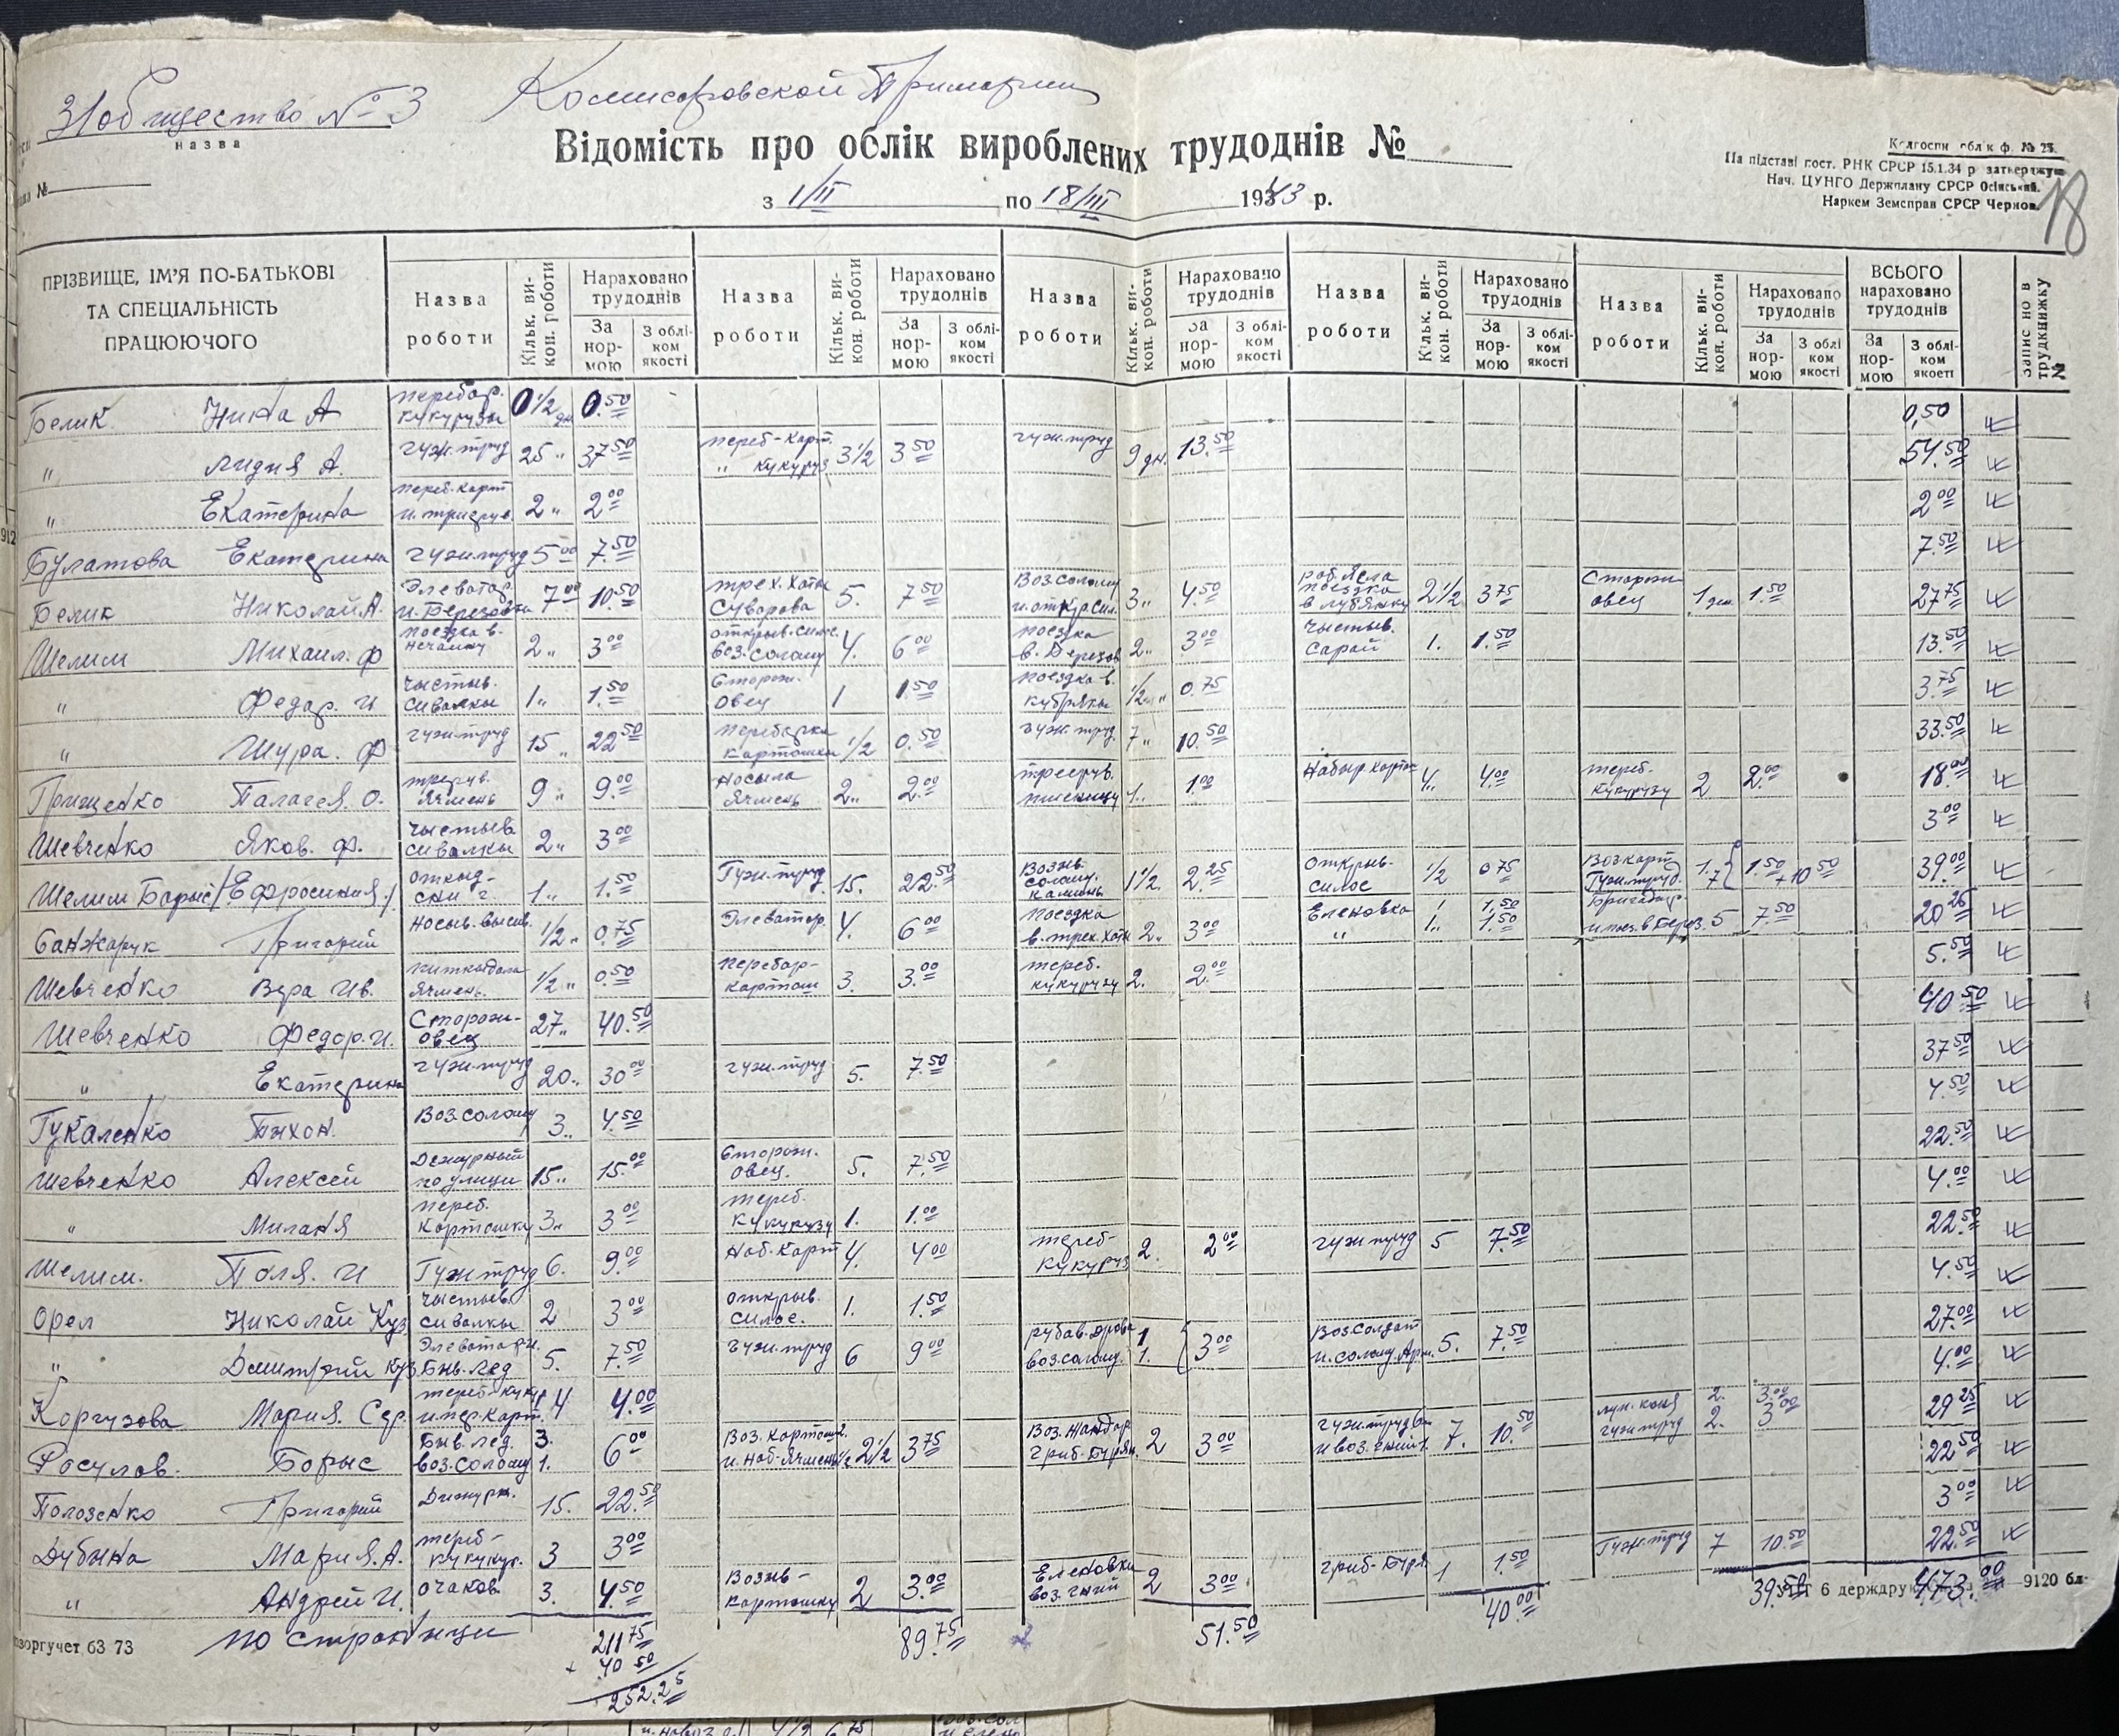 Зі общество № 3 Комисаровской Примарии
назва
Відомість про облік вироблених трудоднів №
з 1/II по 18/III 1943 р.
Колгоспи облік ф. № 25.
На підставі пост. РНК СРСР 15.1.34 р. затверджую
Нач. ЦУНГО Держплану СРСР Осінський.
Наркем Земсправ СРСР Чернов.
18
ПРІЗВИЩЕ, ІМ'Я ПО-БАТЬКОВІ ТА СПЕЦІАЛЬНІСТЬ ПРАЦЮЮЧОГО
Назва роботи Кільк. викон. роботи Нараховано трудоднів За нормою З обліком якості
Назва роботи Кільк. викон. роботи Нараховано трудоднів За нормою З обліком якості
Назва роботи Кільк. викон. роботи Нараховано трудоднів За нормою З обліком якості
Назва роботи Кільк. викон. роботи Нараховано трудоднів За нормою З обліком якості
Назва роботи Кільк. викон. роботи Нараховано трудоднів За нормою З обліком якості
ВСЬОГО нараховано трудоднів За нормою З обліком якості
Записано в трудкнижку №
Белик Нина А перебор. кукурузы 0 1/2 дн 0.50 0,50
" Лидия А. гуж. труд 25 " 37.50 переб-карт. " кукуруз 3 1/2 3.50 гуж. труд 9 дн. 13.50 54.50
" Екатерина переб. карт 2 " 2.00 2.00
Булатова Екатерина гуж. труд 5.00 7.50 7.50
Белик Николай А. Элеватор и Березовка 7.00 10.50 трех. Хаты Суворова 5. 7.50 Воз солому 3 " 4.50 поездка 2 1/2 3.75 Сторож овец 1 дн. 1.50 27.75
Шелим Михаил. Ф поездка в. 2 " 3.00 открыв. силос. воз. солому 4. 6.00 поездка в. Березов 2 " 3.00 чыстыв. сарай 1. 1.50 13.50
" Федор. И чыстыв. сивалкы 1 " 1.50 Сторож. овец 1 1.50 поездка в. 1/2 " 0.75 3.75
" Шура. Ф гуж. труд 15 " 22.50 переборка картошки 1/2 0.50 гуж. труд. 7 " 10.50 33.50
Грищенко Палагея. О. Ячмень 9 " 9.00 Носыла Ячмень 2 " 2.00 пшеницу 1 " 1.00 Набыр карто 4. 4.00 переб. кукурузу 2 2.00 18.00
Шевченко Яков. Ф. чыстыв сивалкы 2 " 3.00 3.00
Шелим Барыс /Ефросиния/ 1 " 1.50 Гуж. труд. 15. 22.50 Возыв. солому. 1 1/2. 2.25 открыв. силос 1/2 0.75 Воз карт Гуж. труд. 1. 7 1.50 + 10.50 39.00
Санжарук Григорий Носыв. высив. 1/2 " 0.75 Элеватор. 4. 6.00 Поездка в. трех. хаты 2 " 3.00 Еленовка 1 1.50 " 1 " 1.50 Бригадир 5 7.50 20.25
Шевченко Вера Ив. Ячмень. 1/2 " 0.50 перебор- картош 3. 3.00 переб. кукурузу 2. 2.00 5.50
Шевченко Федор. И. Сторож- овец 27 " 40.50 40.50
" Екатерина гуж. труд 20 " 30.00 гуж. труд 5. 7.50 37.50
Гукаленко Тыхон. Воз. солому 3 " 4.50 4.50
Шевченко Алексей Дежурный по улици 15 " 15.00 Сторож. овец. 5. 7.50 22.50
" Миланя переб. картошку 3 " 3.00 переб. кукурузу 1. 1.00 4.00
Шелим. Поля. И Гуж труд 6. 9.00 Наб. Карт 4. 4.00 переб- кукуруз 2. 2.00 гуж труд 5 7.50 22.50
Орел Николай Куз. чыстыв. сивалкы 2 3.00 открыв. силос. 1. 1.50 4.50
" Дмитрий Куз. Быв. лед 5. 7.50 гуж. труд 6 9.00 рубав. дрова 1 воз. солому. 1. 3.00 Воз. солдат и. солому Арм. 5. 7.50 27.00
Коргузова Мария. Сер. переб- кукур и пер. карт. 4 4.00 4.00
Росулов. Борыс Быв. лед. 3. воз. солому 1. 6.00 Воз. картош 2. и. наб- Ячмень 1/2 2 1/2 3.75 2 3.00 7. 10.50 2. 3.00 гуж труд 2. 3.00 29.25
Полозенко Григорий Дижурн. 15. 22.50 22.50
Дубына Мария. А. переб- кукукур. 3 3.00 3.00
" Андрей И. очаков. 3. 4.50 Возыв- картошку 2 3.00 Еленовка воз. гний 2 3.00 1 1.50 Гуж. труд 7 10.50 22.50
по странице 211.75 89.75 51.50 40.00 39.50 473.00
+ 40.50
252.25
6 держдрук 9120 бл.
изоргучет 63 73